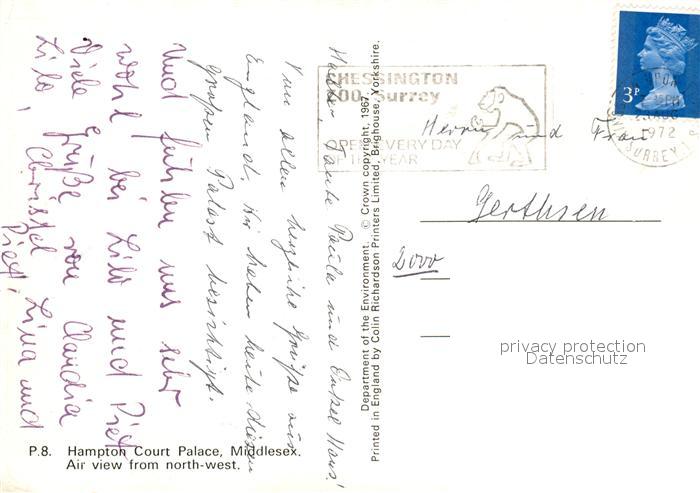 Hallo, Tante Paula und Onkel Hans!
Von allen herzliche Grüße aus
England. Wir haben heute diesen
großen Palast besichtigt.
Und fühlen uns sehr
wohl bei Lilo und Piet
Viele Grüße von Claudia
Lilo, Christel, Lina und
Piet,
P.8. Hampton Court Palace, Middlesex.
Air view from north-west.
Department of the Environment. © Crown copyright, 1967.
Printed in England by Colin Richardson Printers Limited, Brighouse, Yorkshire.
CHESSINGTON
ZOO, Surrey
OPEN EVERY DAY
THE YEAR
3P
1972
SURREY
Herrn und Frau
Gerthsen
2000
privacy protection
Datenschutz